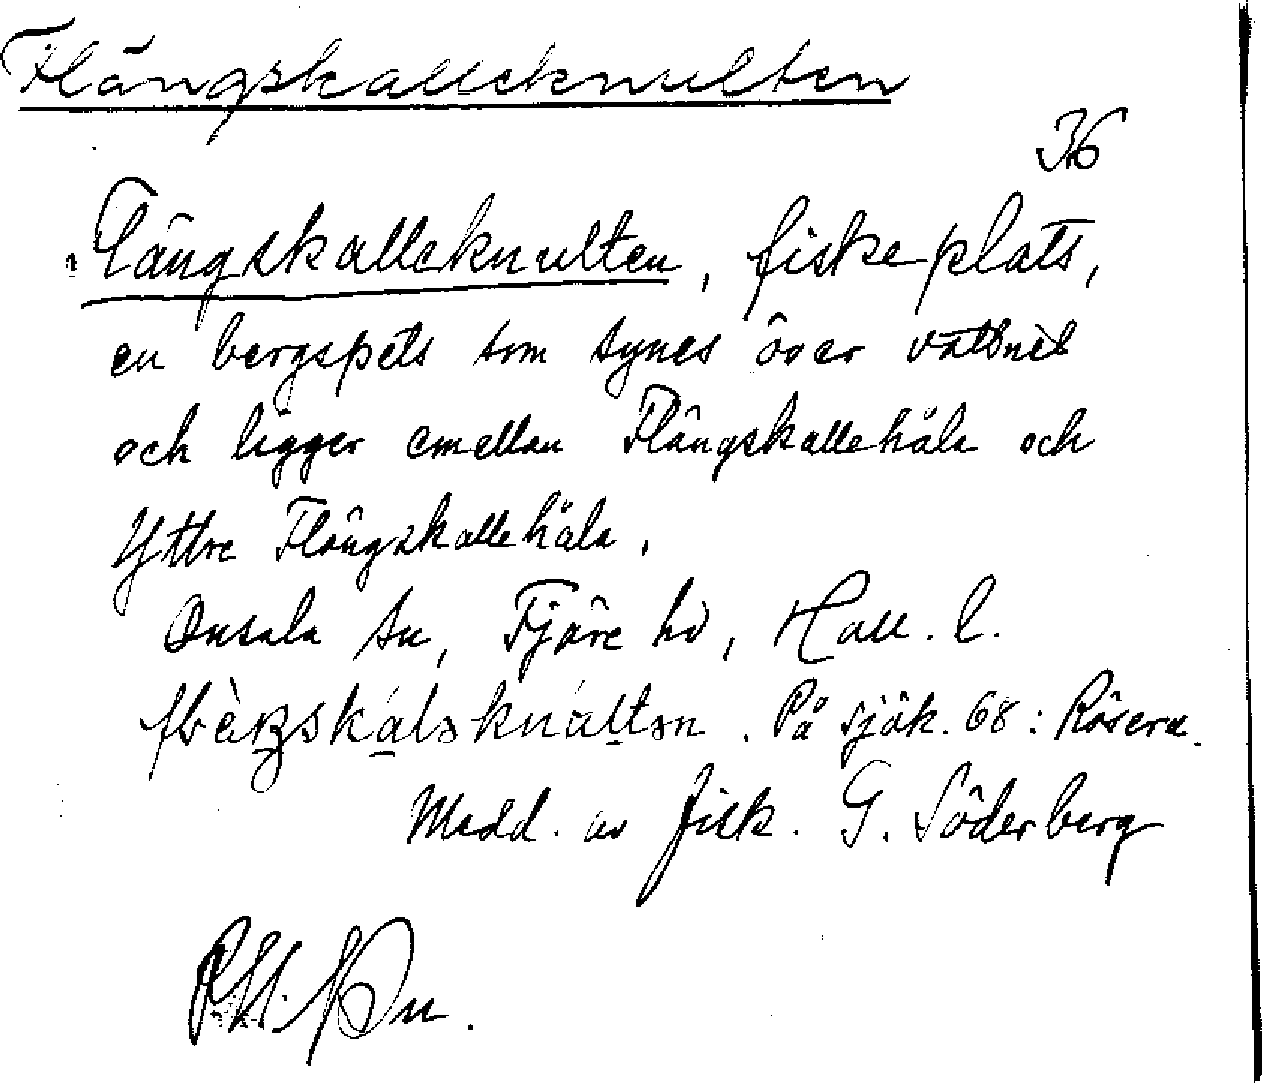 Flängskalleknulten
36
Flängskalleknulten, fiskeplats,
en bergspets som synes över vattnet
och ligger emellan Flängskallehåla och
Yttre Flängskallehåla.
Onsala sn, Fjäre hd, Hall. l.
På sjök. 68: Rösera.
Medd. av fisk. G. Söderberg